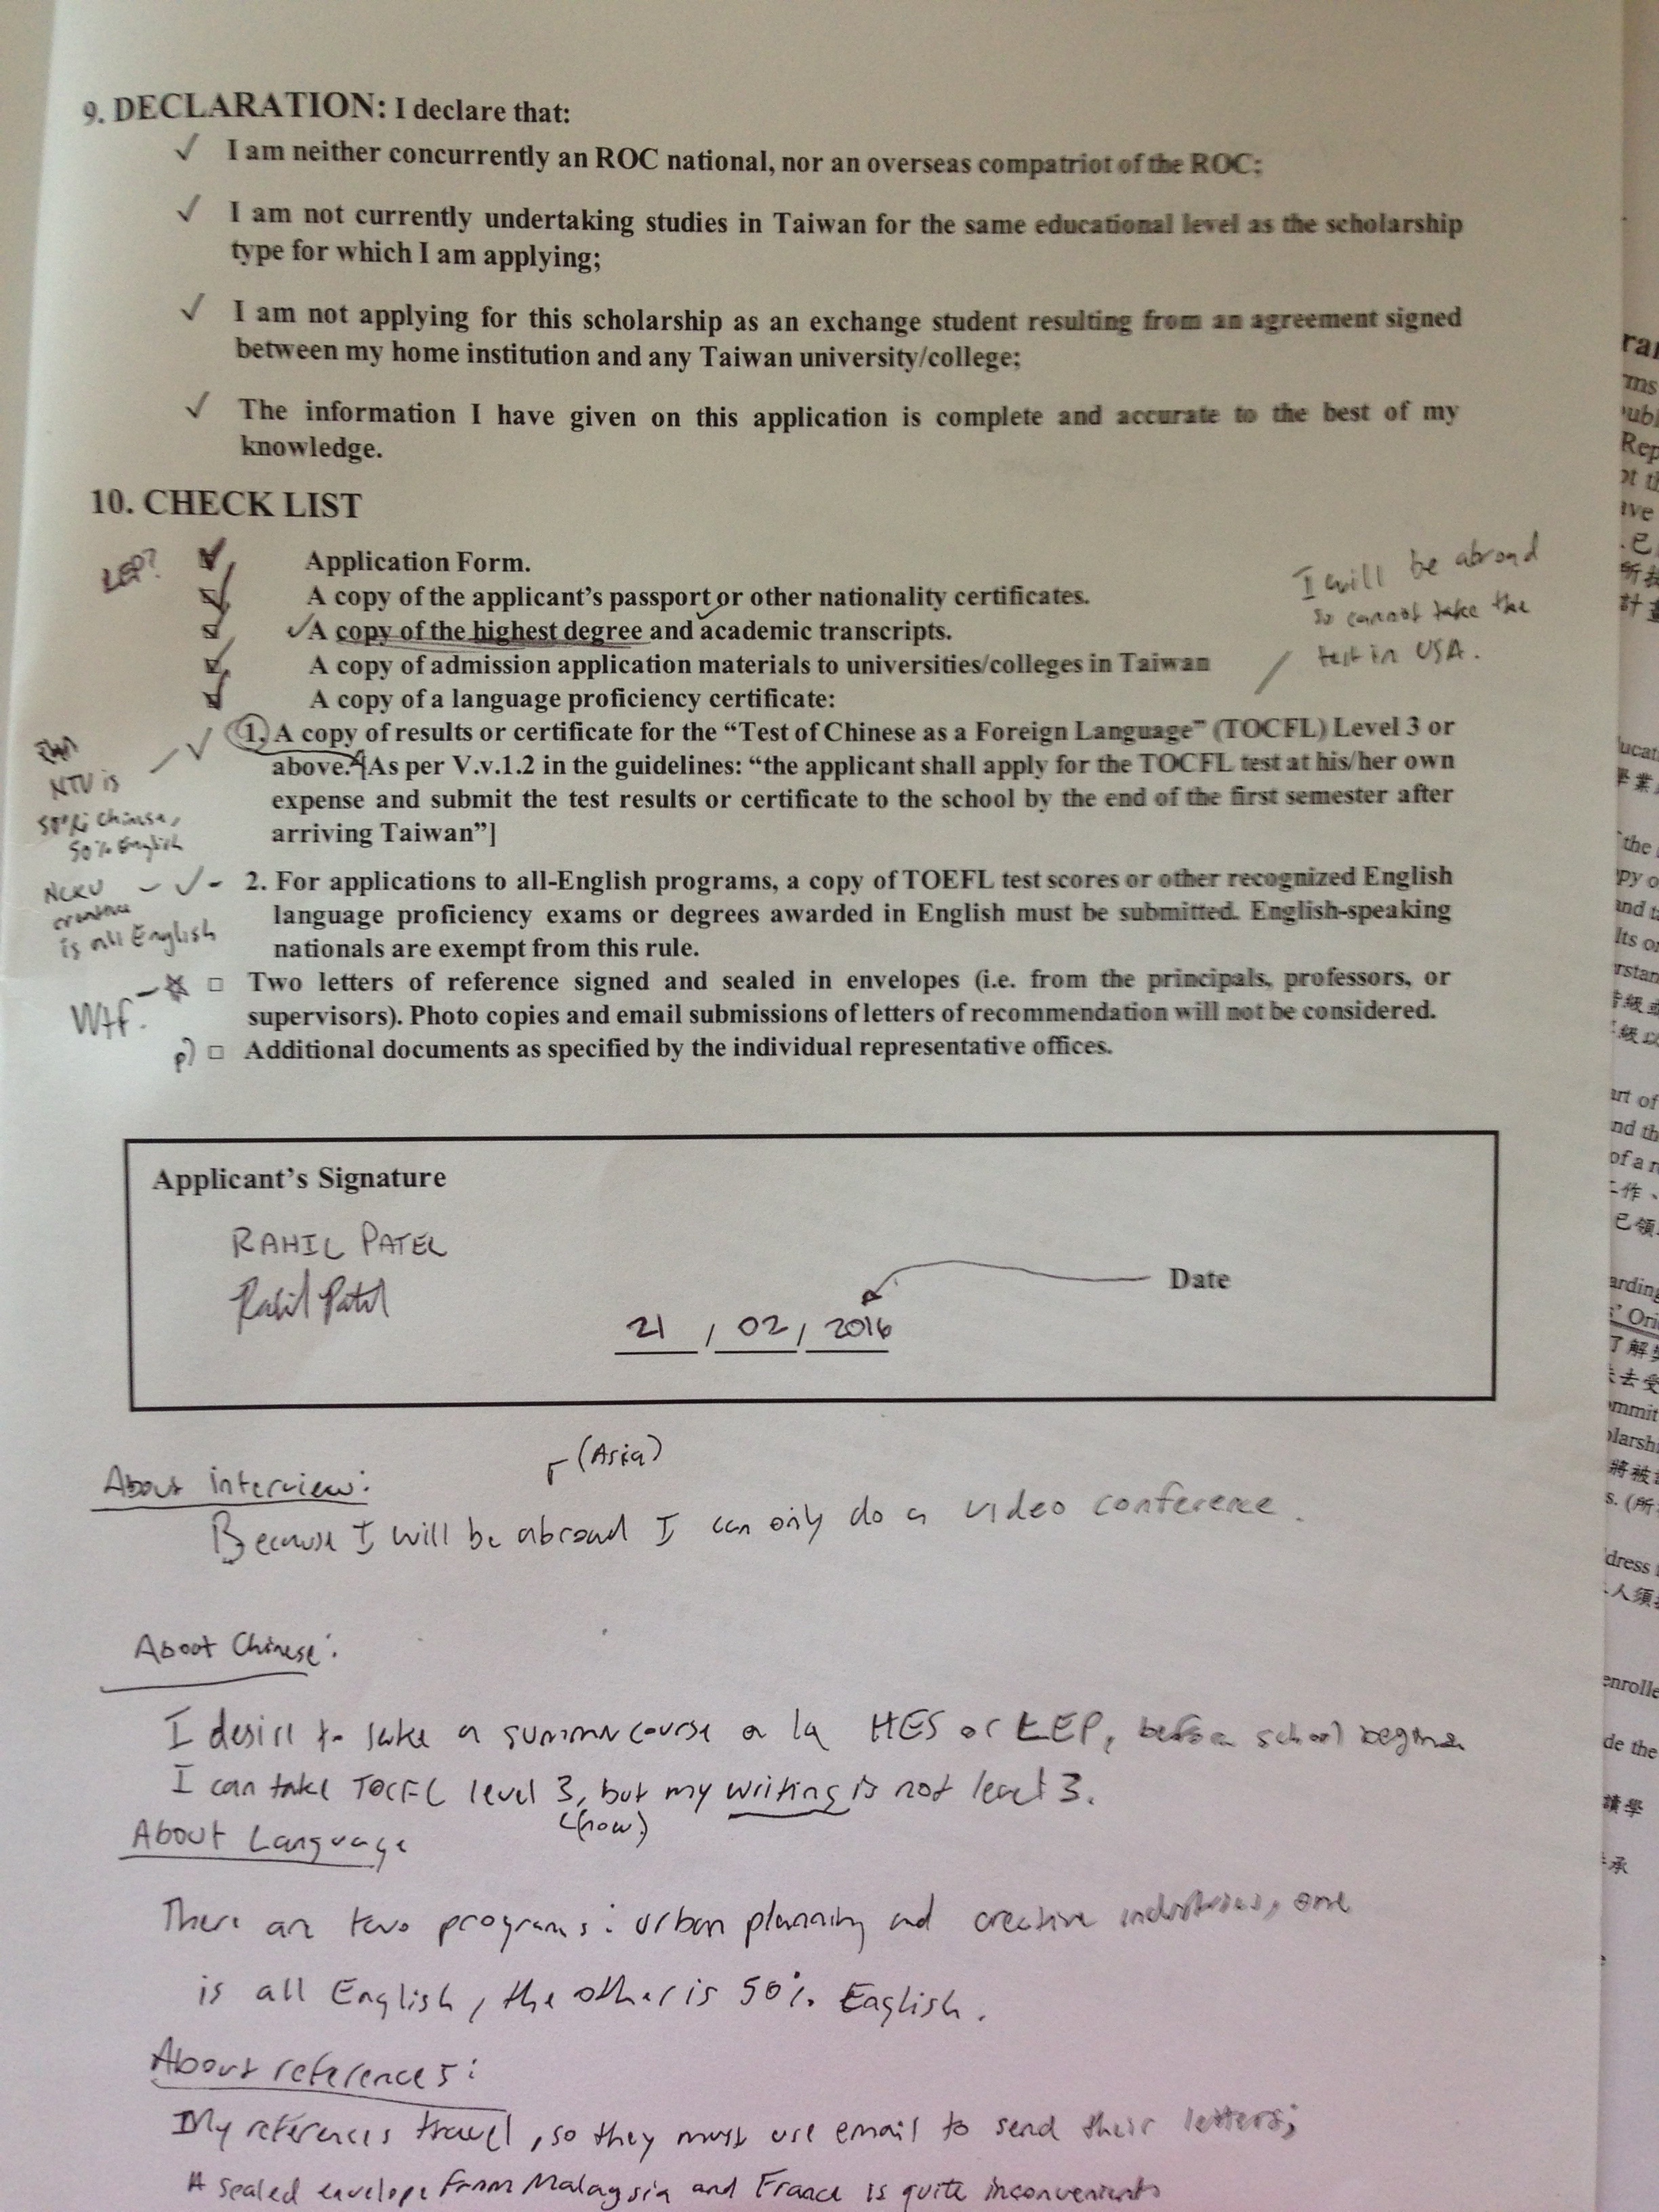 9. DECLARATION: I declare that:
✓ I am neither concurrently an ROC national, nor an overseas compatriot of the ROC;
✓ I am not currently undertaking studies in Taiwan for the same educational level as the scholarship
type for which I am applying;
✓ I am not applying for this scholarship as an exchange student resulting from an agreement signed
between my home institution and any Taiwan university/college;
✓ The information I have given on this application is complete and accurate to the best of my
knowledge.
10. CHECK LIST
LEP?
Application Form.
A copy of the applicant's passport or other nationality certificates.
A copy of the highest degree and academic transcripts.
A copy of admission application materials to universities/colleges in Taiwan
A copy of a language proficiency certificate:
I will be abroad
so cannot take the
test in USA.
1. A copy of results or certificate for the “Test of Chinese as a Foreign Language” (TOCFL) Level 3 or
above. [As per V.v.1.2 in the guidelines: “the applicant shall apply for the TOCFL test at his/her own
expense and submit the test results or certificate to the school by the end of the first semester after
arriving Taiwan”]
NTU is
50% Chinese,
50% English
2. For applications to all-English programs, a copy of TOEFL test scores or other recognized English
language proficiency exams or degrees awarded in English must be submitted. English-speaking
nationals are exempt from this rule.
NCKU
is all English
□ Two letters of reference signed and sealed in envelopes (i.e. from the principals, professors, or
supervisors). Photo copies and email submissions of letters of recommendation will not be considered.
Wtf.
□ Additional documents as specified by the individual representative offices.
Applicant's Signature
RAHIL PATEL
Rahil Patel
Date
21 / 02 / 2016
About interview:
(Asia)
Because I will be abroad I can only do a video conference.
About Chinese:
I desire to take a summer course a la HES or LEP, before school begins
I can take TOCFL level 3, but my writing is not level 3.
(now)
About Language
There are two programs: urban planning and creative industries, one
is all English, the other is 50% English.
About references:
My references travel, so they must use email to send their letters;
A sealed envelope from Malaysia and France is quite inconvenient